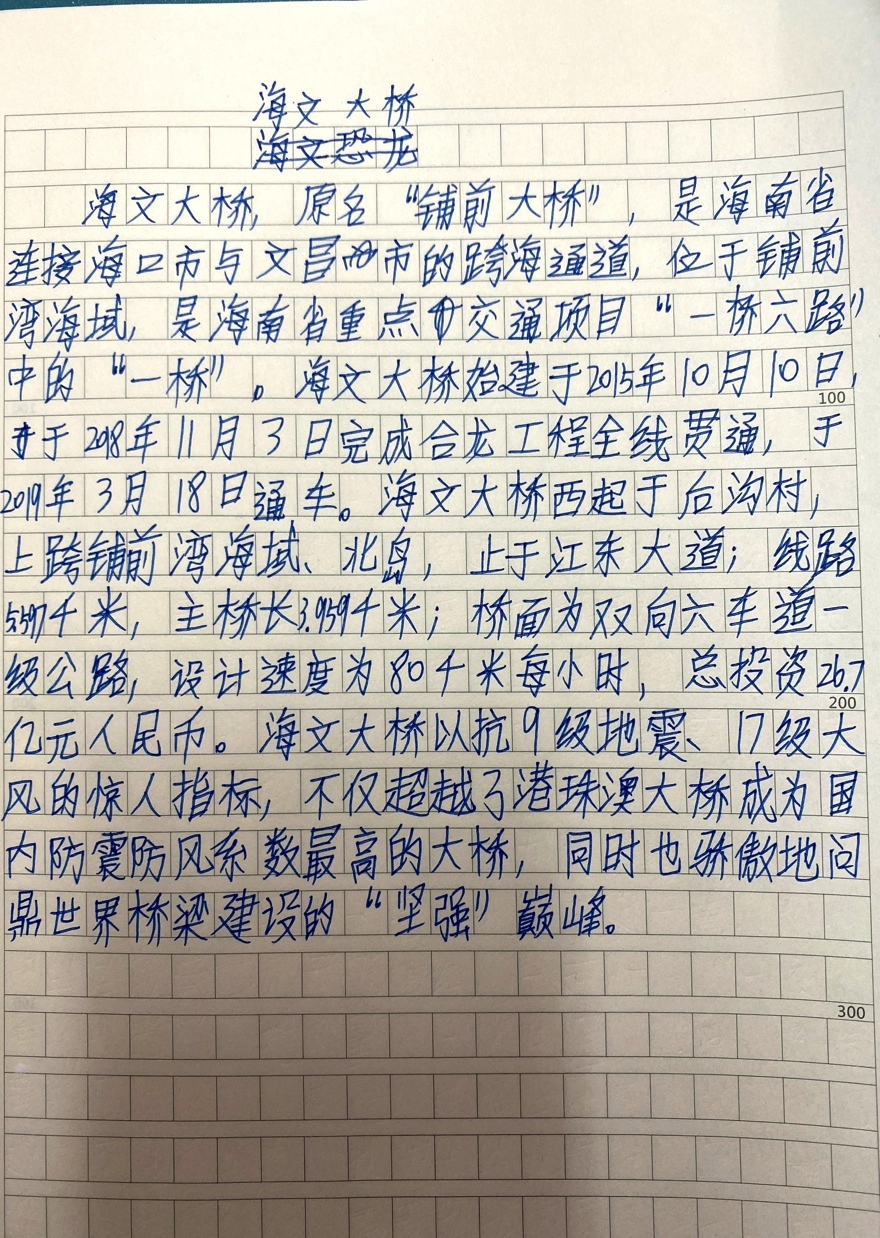 海文大桥
海文恐龙
海文大桥，原名“铺前大桥”，是海南省
连接海口市与文昌市的跨海通道，位于铺前
湾海域，是海南省重点交通项目“一桥六路”
中的“一桥”。海文大桥始建于2015年10月10日，
100
于2018年11月3日完成合龙工程全线贯通，于
2019年3月18日通车。海文大桥西起于后沟村，
上跨铺前湾海域、北岛，止于江东大道；线路
5.597千米，主桥长3.959千米；桥面为双向六车道一
级公路，设计速度为80千米每小时，总投资26.7
200
亿元人民币。海文大桥以抗9级地震、17级大
风的惊人指标，不仅超越了港珠澳大桥成为国
内防震防风系数最高的大桥，同时也骄傲地问
鼎世界桥梁建设的“坚强”巅峰。
300